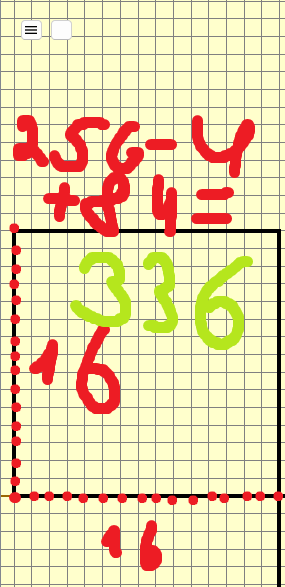 256-4
+84=
336
16
16